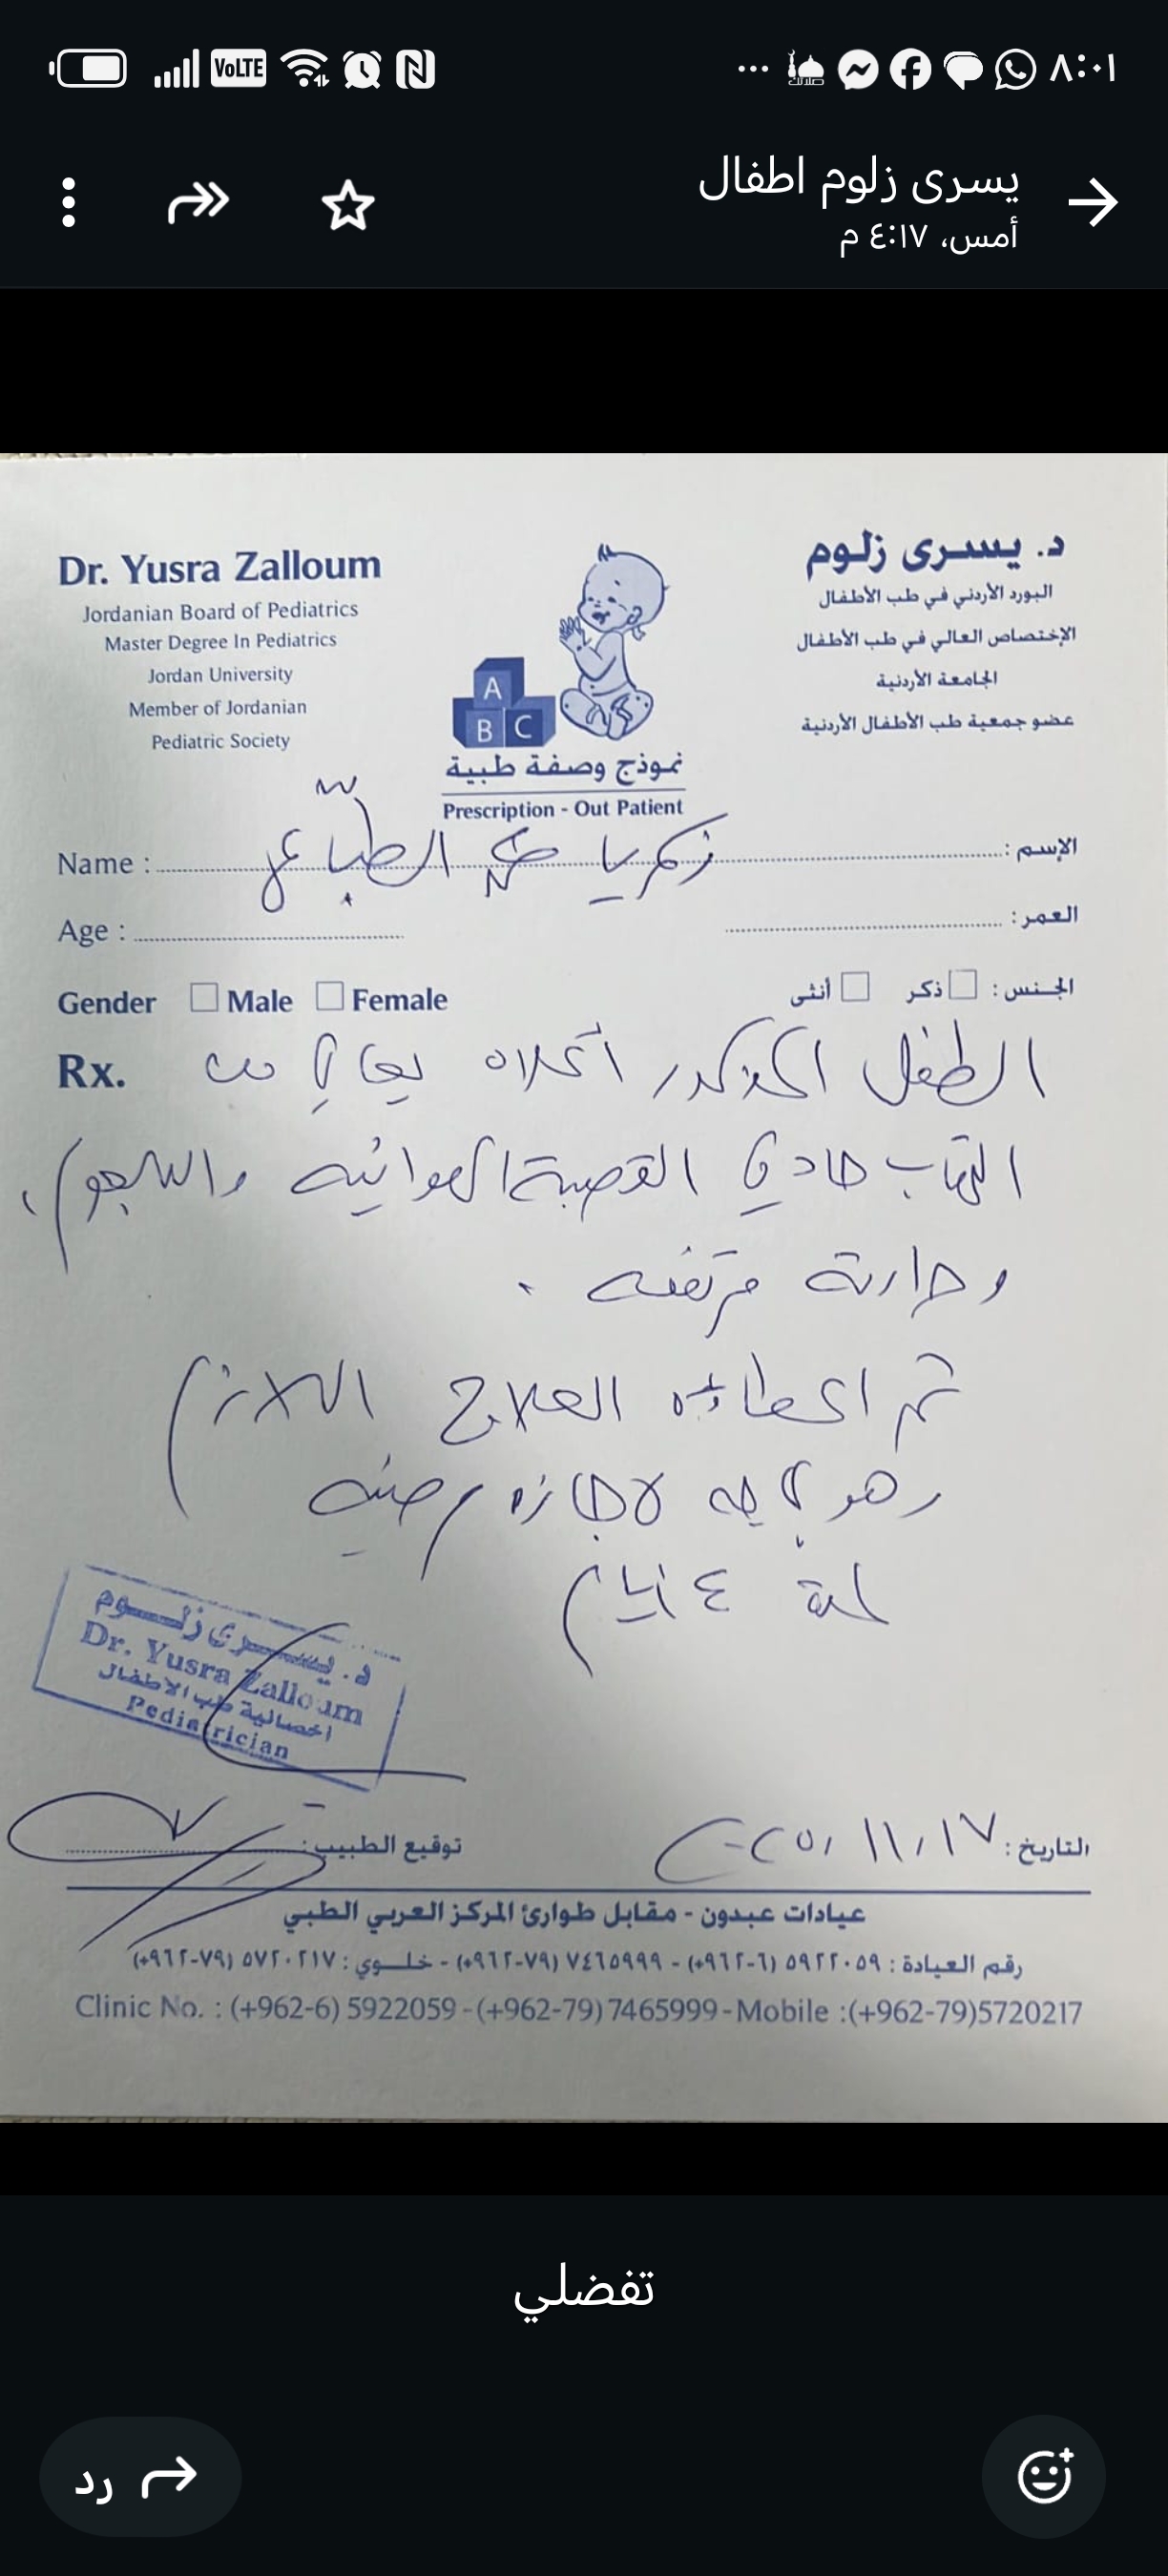 ٨:٠١
VoLTE
يسرى زلوم اطفال
أمس، ٤:١٧ م
Dr. Yusra Zalloum
Jordanian Board of Pediatrics
Master Degree In Pediatrics
Jordan University
Member of Jordanian
Pediatric Society
د. يسرى زلوم
البورد الأردني في طب الأطفال
الإختصاص العالي في طب الأطفال
الجامعة الأردنية
عضو جمعية طب الأطفال الأردنية
A
B C
نموذج وصفة طبية
Prescription - Out Patient
Name : زكريا الطبّاع الإسم :
Age : العمر :
Gender Male Female الجنس : ذكر أنثى
Rx.
الطفل المذكور أعلاه يعاني من
التهاب حاد في القصبة الهوائيه والبلعوم،
وحرارته مرتفعه .
تم اعطاؤه العلاج اللازم
وهو بحاجه لاجازه مرضيه
لمدة ٤ أيام
د. يسرى زلوم
Dr. Yusra Zalloum
اخصائية طب الاطفال
Pediatrician
التاريخ : ١٧/١١/٢٠٢٥ توقيع الطبيب :
عيادات عبدون - مقابل طوارئ المركز العربي الطبي
رقم العيادة : ٥٩٢٢٠٥٩ (٦-٩٦٢+) - ٧٤٦٥٩٩٩ (٧٩-٩٦٢+) - خلوي : ٥٧٢٠٢١٧ (٧٩-٩٦٢+)
Clinic No. : (+962-6) 5922059 - (+962-79) 7465999 - Mobile :(+962-79)5720217
تفضلي
رد